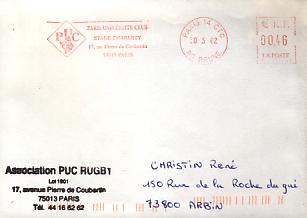 PUC
PARIS UNIVERSITE CLUB
STADE CHARLETY
17, av Pierre de Coubertin
75013 PARIS
PARIS 14 CTC
0 5. 02
AV. RENNE
R.F.
00,46
LA POSTE
Association PUC RUGBY
Loi 1901
17, avenue Pierre de Coubertin
75013 PARIS
Tél. 44 16 62 62
CHRISTIN René
150 Rue de la Roche du gué
73800 ARBIN